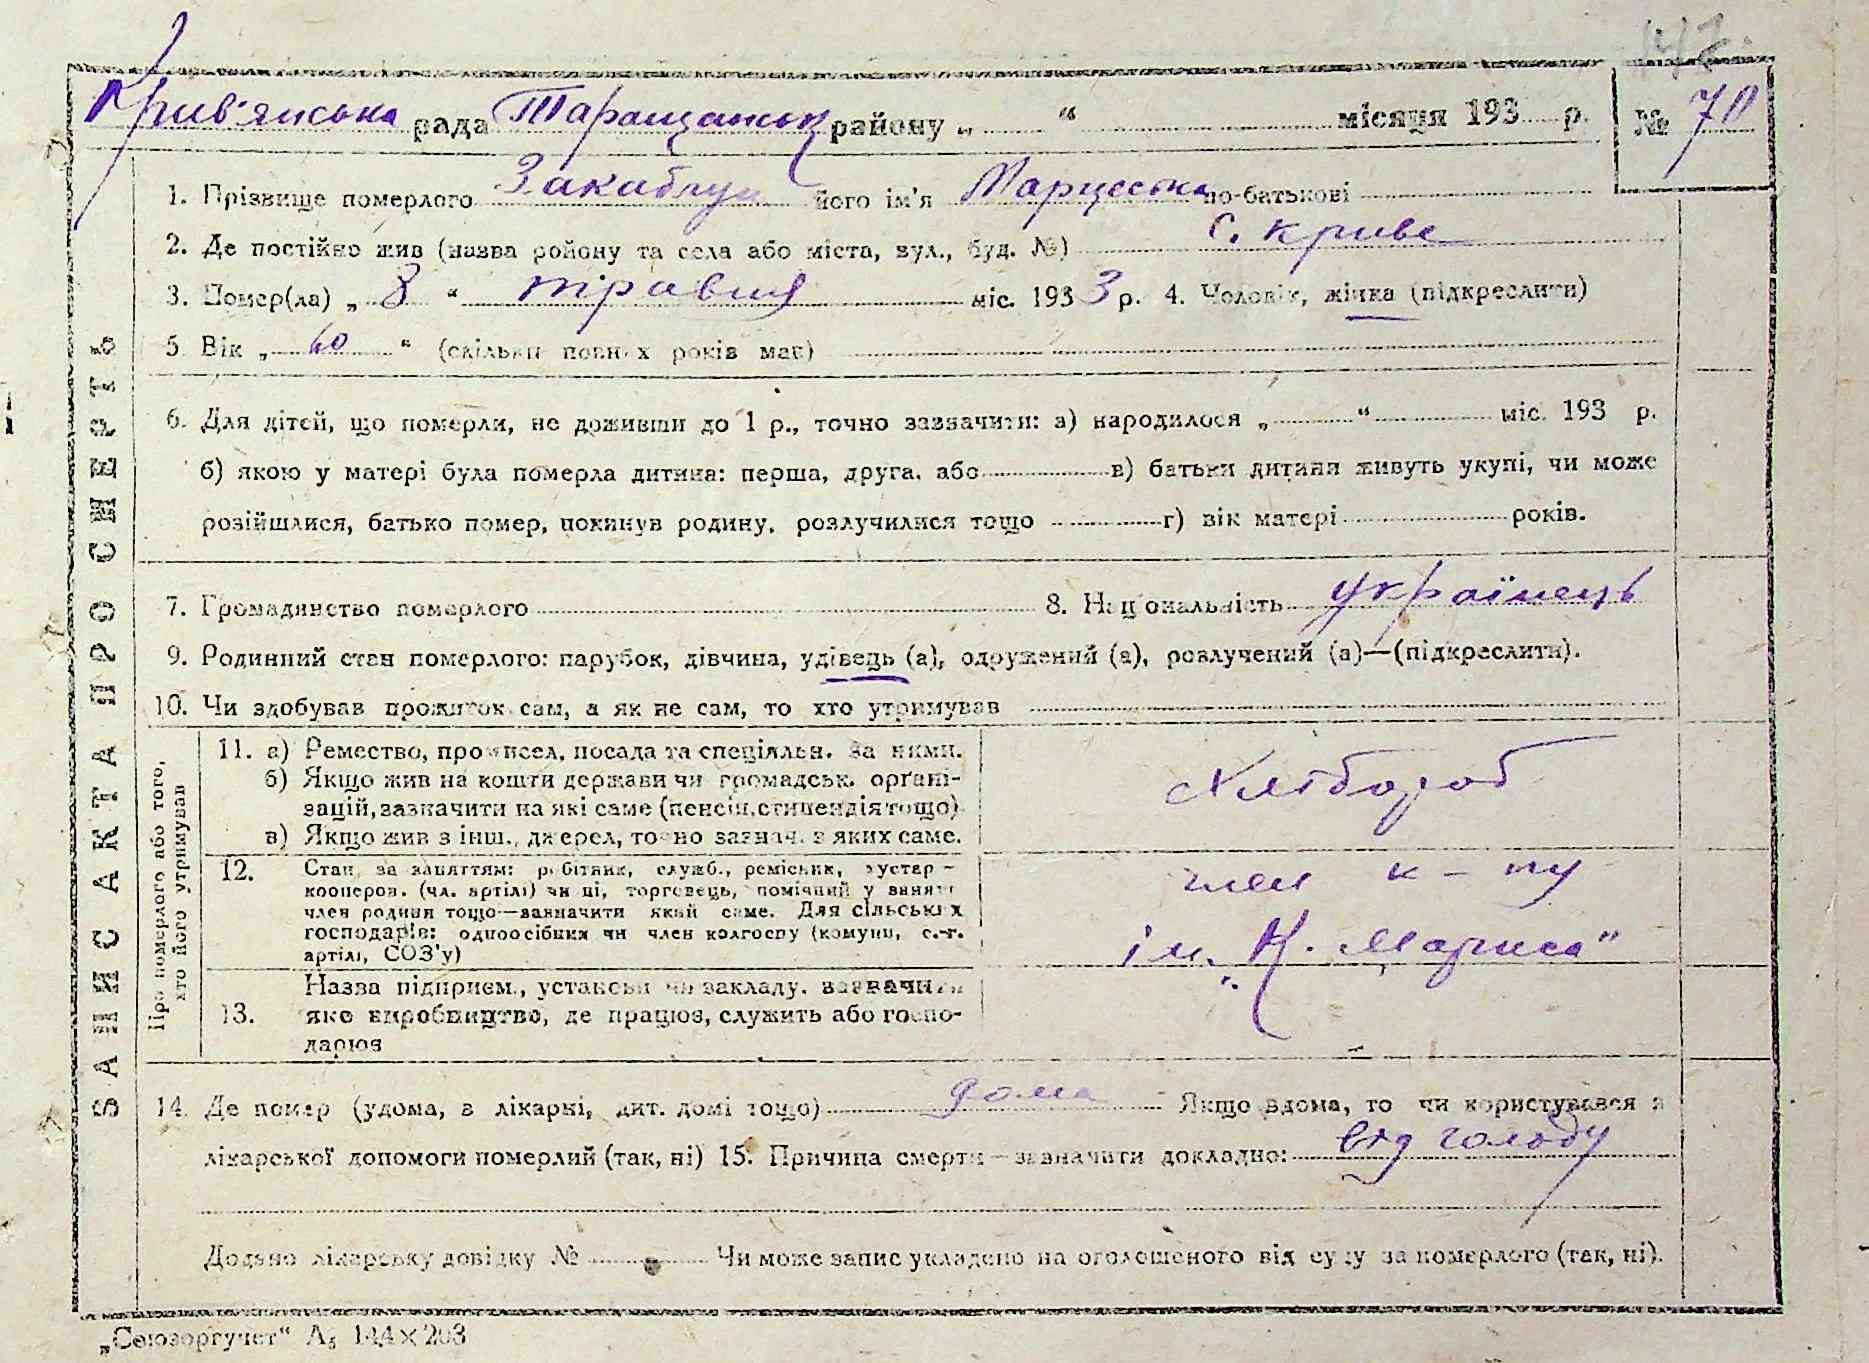 142.
Крив'янська рада Таращанськ району „ “ місяця 193 р. № 70
1. Прізвище померлого Закаблук його ім'я Маруська по-батькові
2. Де постійно жив (назва ройону та села або міста, вул., буд. №) с. Криве
3. Помер(ла) „ 8 “ травня міс. 193 3 р. 4. Чоловік, жінка (підкреслити)
5 Вік „ 60 “ (скільки повних років мав)
6. Для дітей, що померли, не доживши до 1 р., точно зазначити: а) народилося „ “ міс. 193 р.
б) якою у матері була померла дитина: перша, друга, або в) батьки дитини живуть укупі, чи може
розійшлися, батько помер, покинув родину, розлучилися тощо г) вік матері років.
7. Громадянство померлого 8. Національність українець
9. Родинний стан померлого: парубок, дівчина, удівець (а), одружений (а), розлучений (а)—(підкреслити).
10. Чи здобував прожиток сам, а як не сам, то хто утримував
ЗАПИС АКТА ПРО СМЕРТЬ
Про померлого або того,
хто його утримував
11. а) Ремество, промисел, посада та спеціяльн. за ними.
б) Якщо жив на кошти держави чи громадськ. орґані-
зацій, зазначити на які саме (пенсія, стипендія тощо)
в) Якщо жив з інш., джерел, точно зазнач. з яких саме.
Хлібороб
12. Стан за заняттям: робітник, служб., ремісник, кустар-
кооперов. (чл. артілі) чи ні, торговець, помічний у занятт
член родини тощо—зазначити який саме. Для сільських
господарів: одноосібник чи член колгоспу (комуни, с.-г.
артілі, СОЗ'у)
член к-пу
ім. „К. Маркса“
Назва підприєм., установи чи закладу, зазначити
13. яке виробництво, де працює, служить або госпо-
дарює
14. Де помер (удома, в лікарні, дит. домі тощо) дома Якщо вдома, то чи користувався з
лікарської допомоги померлий (так, ні) 15. Причина смерти — зазначити докладно: від голоду
Додано лікарську довідку № Чи може запис укладено на оголошеного від суду за померлого (так, ні).
„Союзоргучет“ А₅ 144×203